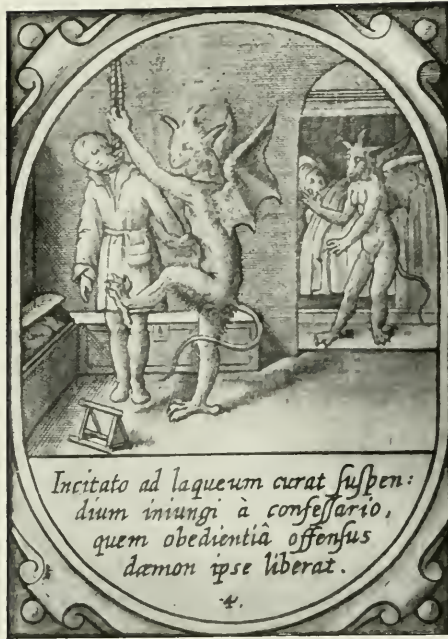 Incitato ad laqueum curat ſuſpen:
dium iniungi à confeſſario,
quem obedientiâ offenſus
dæmon ipse liberat.
.4.